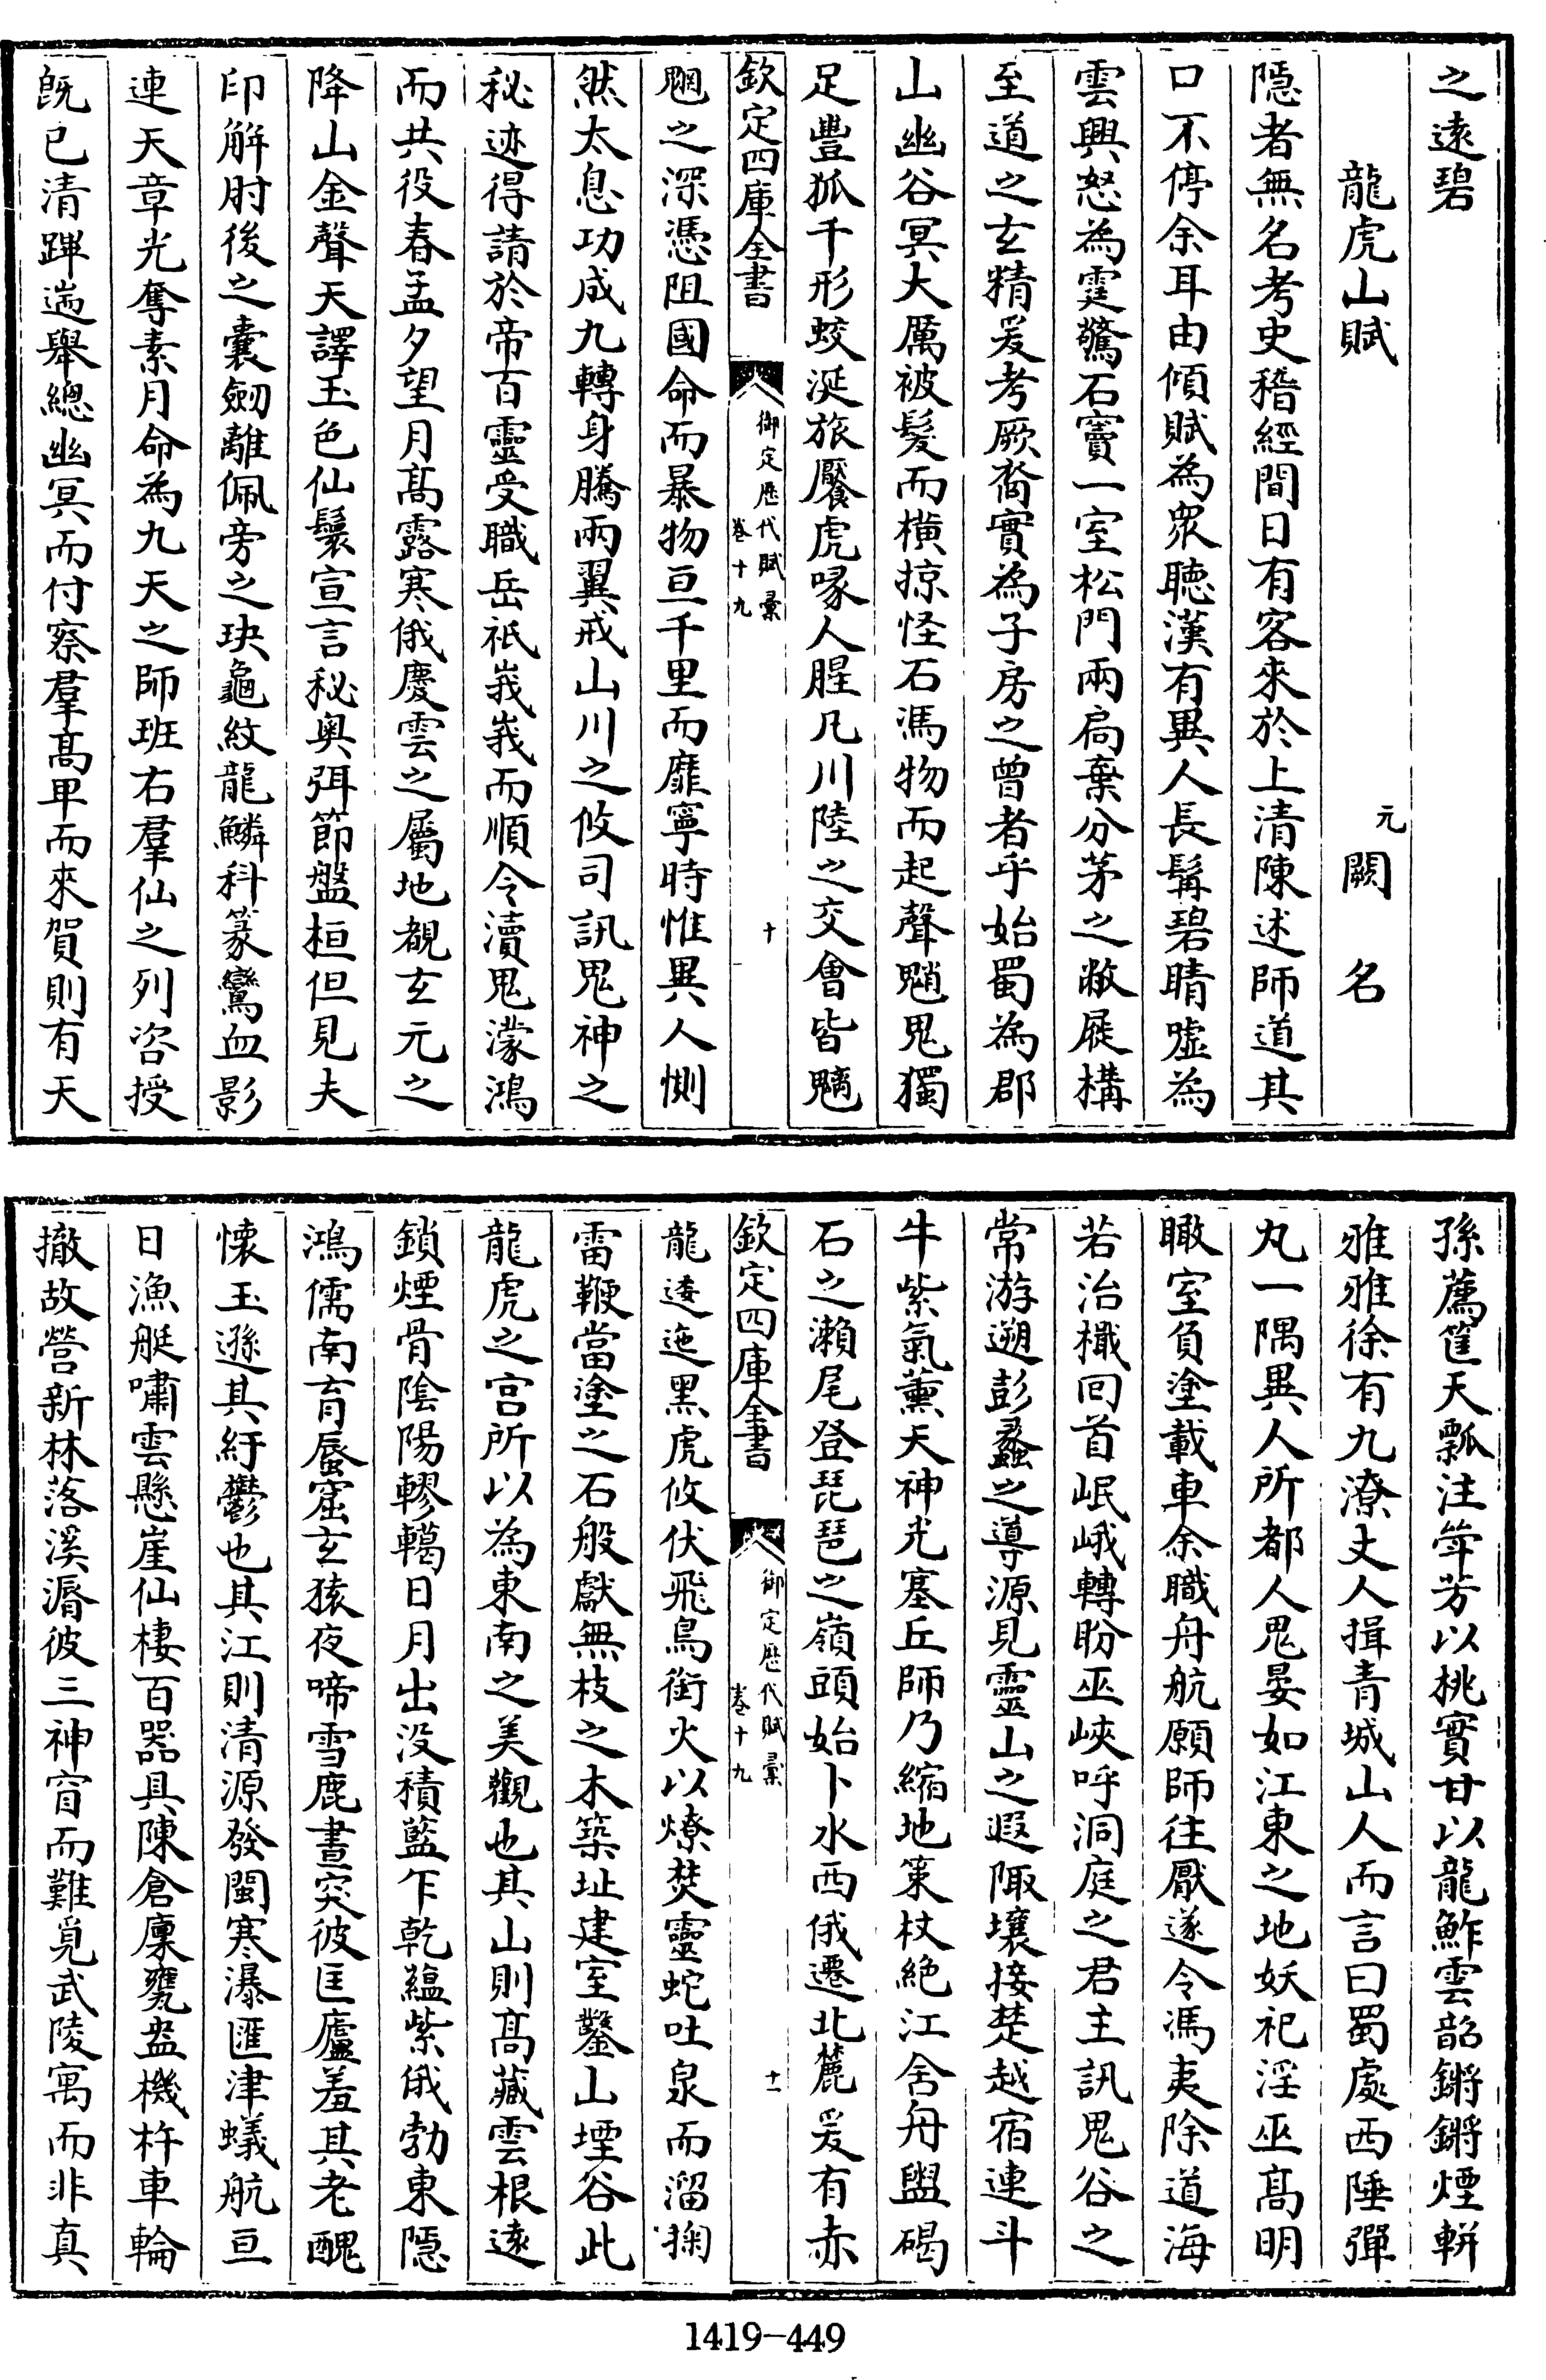 之遠碧
龍虎山賦
元闕名
隱者無名考史稽經間日有客來於上清陳述師道其
口不停余耳由傾賦為衆聽漢有異人長髯碧睛噓為
雲興怒為霆驚石竇一室松門兩扃棄分茅之敝屣構
至道之玄精爰考厥裔實為子房之曾者乎始蜀為郡
山幽谷冥大厲被髮而橫掠怪石馮物而起聲魈鬼獨
足豐狐千形蛟涎旅饜虎喙人腥凡川陸之交會皆魑
欽定四庫全書
御定歴代賦彙
卷十九
十
魍之深憑阻國命而暴物亘千里而靡寧時惟異人惻
然太息功成九轉身騰兩翼戒山川之攸司訊鬼神之
秘迹得請於帝百靈受職岳祇峩峩而順令瀆鬼濛鴻
而共役春孟夕望月髙露寒俄慶雲之屬地覩玄元之
降山金聲天譯玉色仙鬟宣言秘奥弭節盤桓但見夫
印解肘後之囊劒離佩旁之玦龜紋龍鱗科篆鸞血影
連天章光奪素月命為九天之師班右羣仙之列咨授
旣已清蹕遄舉總幽冥而付察羣髙卑而來賀則有天
孫薦筐天瓢注斝芳以桃實甘以龍鮓雲韶鏘鏘煙軿
雅雅徐有九潦丈人揖青城山人而言曰蜀處西陲彈
丸一隅異人所都人鬼晏如江東之地妖祀淫巫髙明
瞰室負塗載車余職舟航願師往厭遂令馮夷除道海
若治檝回首岷峨轉盼巫峽呼洞庭之君主訊鬼谷之
常游遡彭蠡之導源見靈山之遐陬壤接楚越宿連斗
牛紫氣薰天神光塞丘師乃縮地策杖絶江舍舟盥碣
石之瀨尾登琵琶之嶺頭始卜水西俄遷北麓爰有赤
欽定四庫全書
御定歴代賦彙
卷十九
十一
龍逶迤黑虎攸伏飛鳥銜火以燎焚靈蛇吐泉而溜掬
雷鞭當塗之石般獻無枝之木築址建室鑿山堙谷此
龍虎之宫所以為東南之美觀也其山則髙藏雲根遠
鎖煙骨陰陽轇轕日月出没積藍乍乾蘊紫俄勃東隱
鴻儒南育蜃窟玄猿夜啼雪鹿晝突彼匡廬羞其老醜
懐玉遜其紆鬱也其江則清源發閩寒瀑匯津蟻航亘
日漁艇嘯雲懸崖仙棲百器具陳倉廩甕盎機杼車輪
撤故營新林落溪漘彼三神窅而難覓武陵寓而非真
1419-449